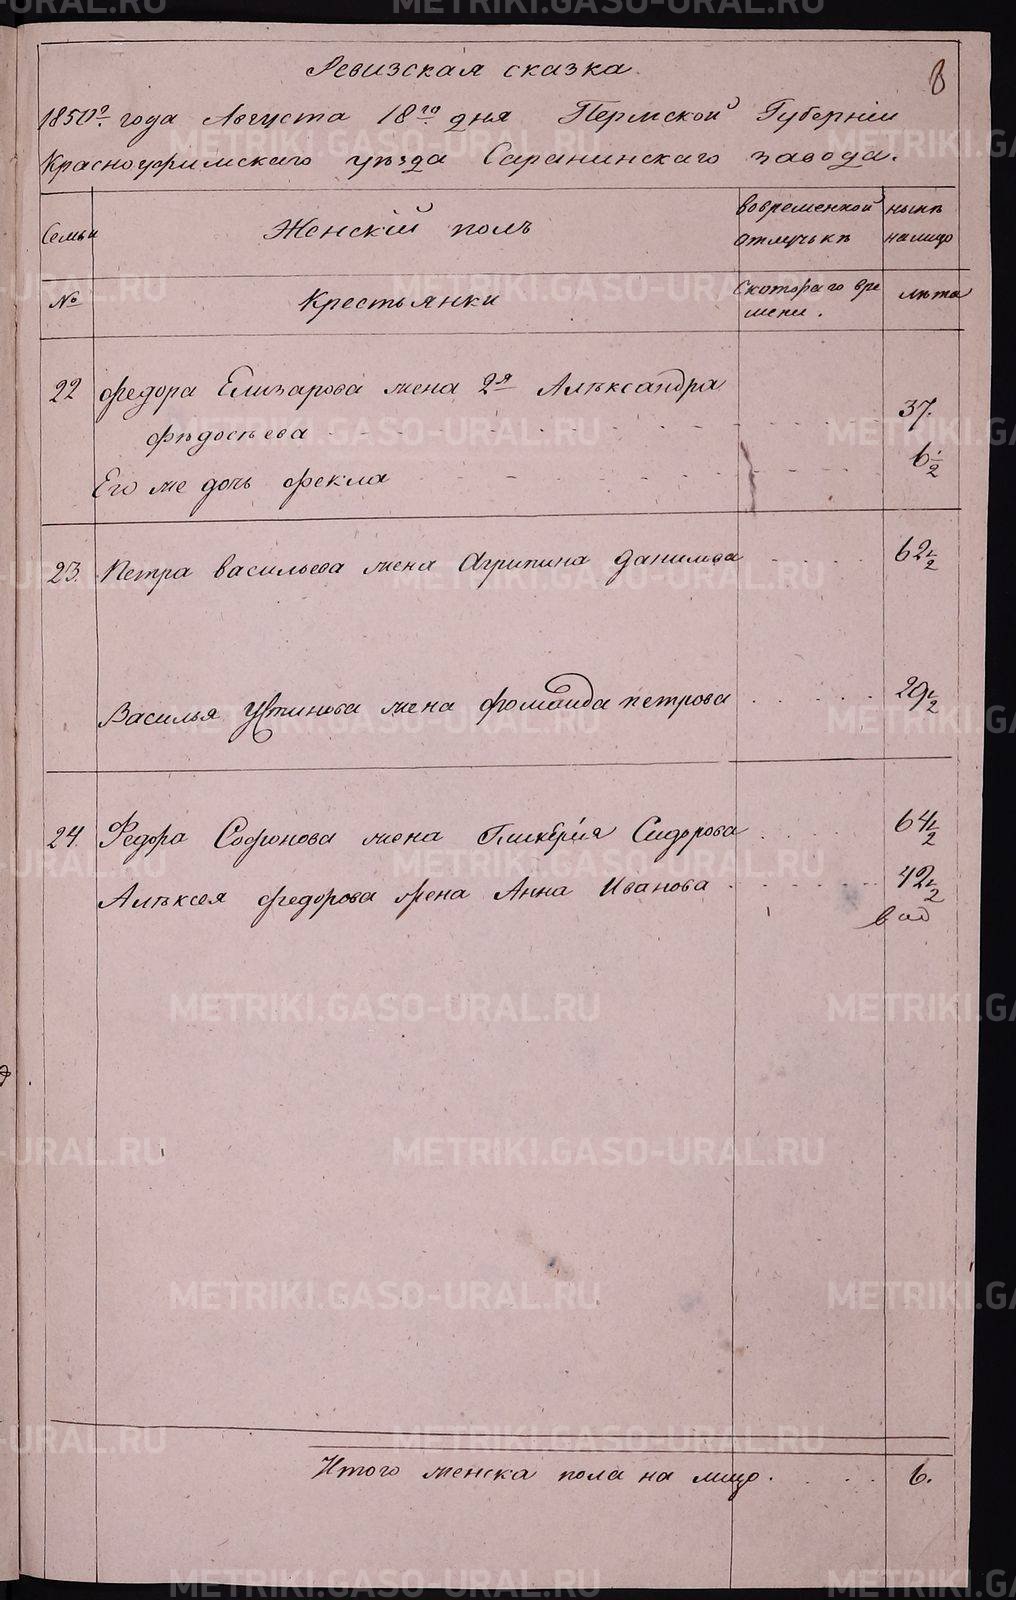 8
Ревизская сказка.
1850го года Августа 18го дня Пермской Губернiи
Красноуфимскаго уѣзда Саранинскаго завода.
Семьи
Женскiй полъ
вовременной отлучькѣ
нынѣ налицо
№
Крестьянки
Скотораго вре
мени.
лѣта
22 Федора Елизарова жена 2я Алѣксандра
Фѣдосѣева 37.
Его же дочь Фекла 6 1/2
23. Петра васильева жена Агрипина данилова 62 1/2
Василья Устинова жена петрова 29 1/2
24. Федора Софронова жена Гликерiя Сидорова 64 1/2
Алѣксея Федорова жена Анна Иванова 42 1/2
Итого женска пола на лицо 6.
METRIKI.GASO-URAL.RU